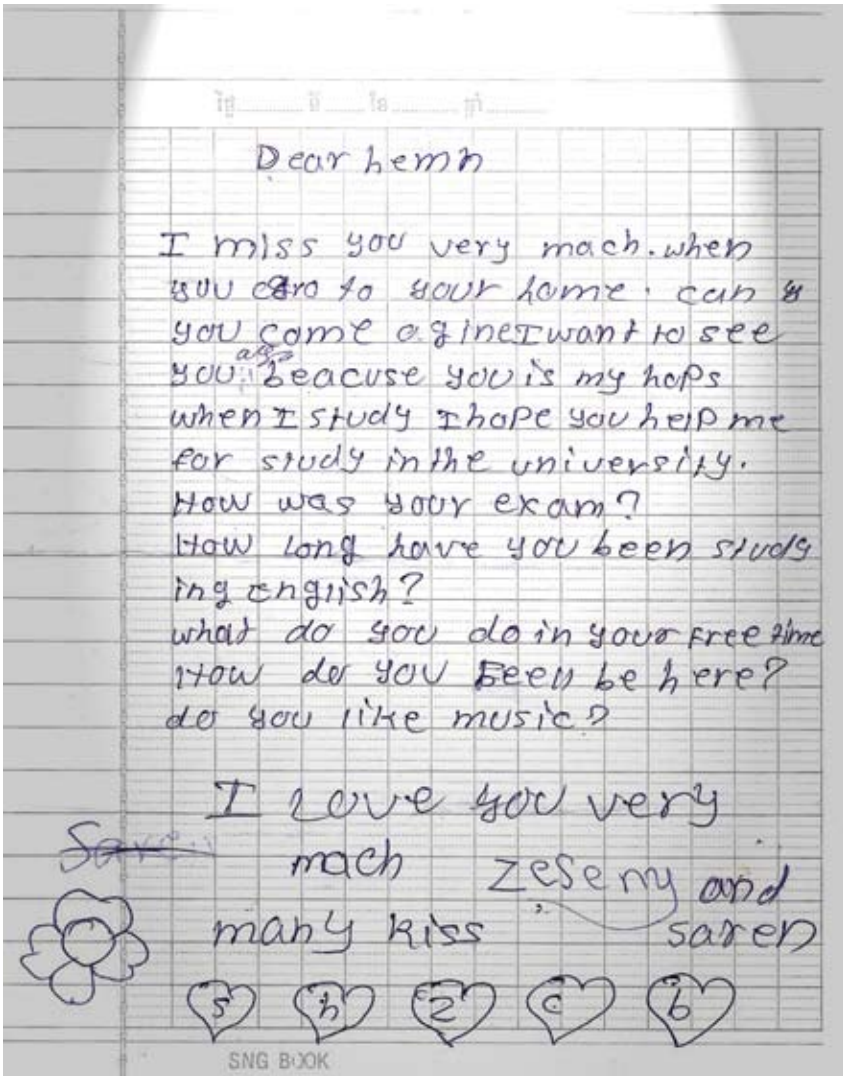 ថ្ងៃ ទី ខែ ឆ្នាំ
Dear hemn
I miss you very mach. when
you to your home. can y
you come agine I want to see
you beacuse you is my hops
when I study I hope you help me
for study in the university.
How was your exam?
How Long have you been study
ing english?
what do you do in your Free time
How do you been be here?
do you like music?
I Love you very
mach
Saren
zeseny and
many kiss saren
s h z c b
SNG BOOK